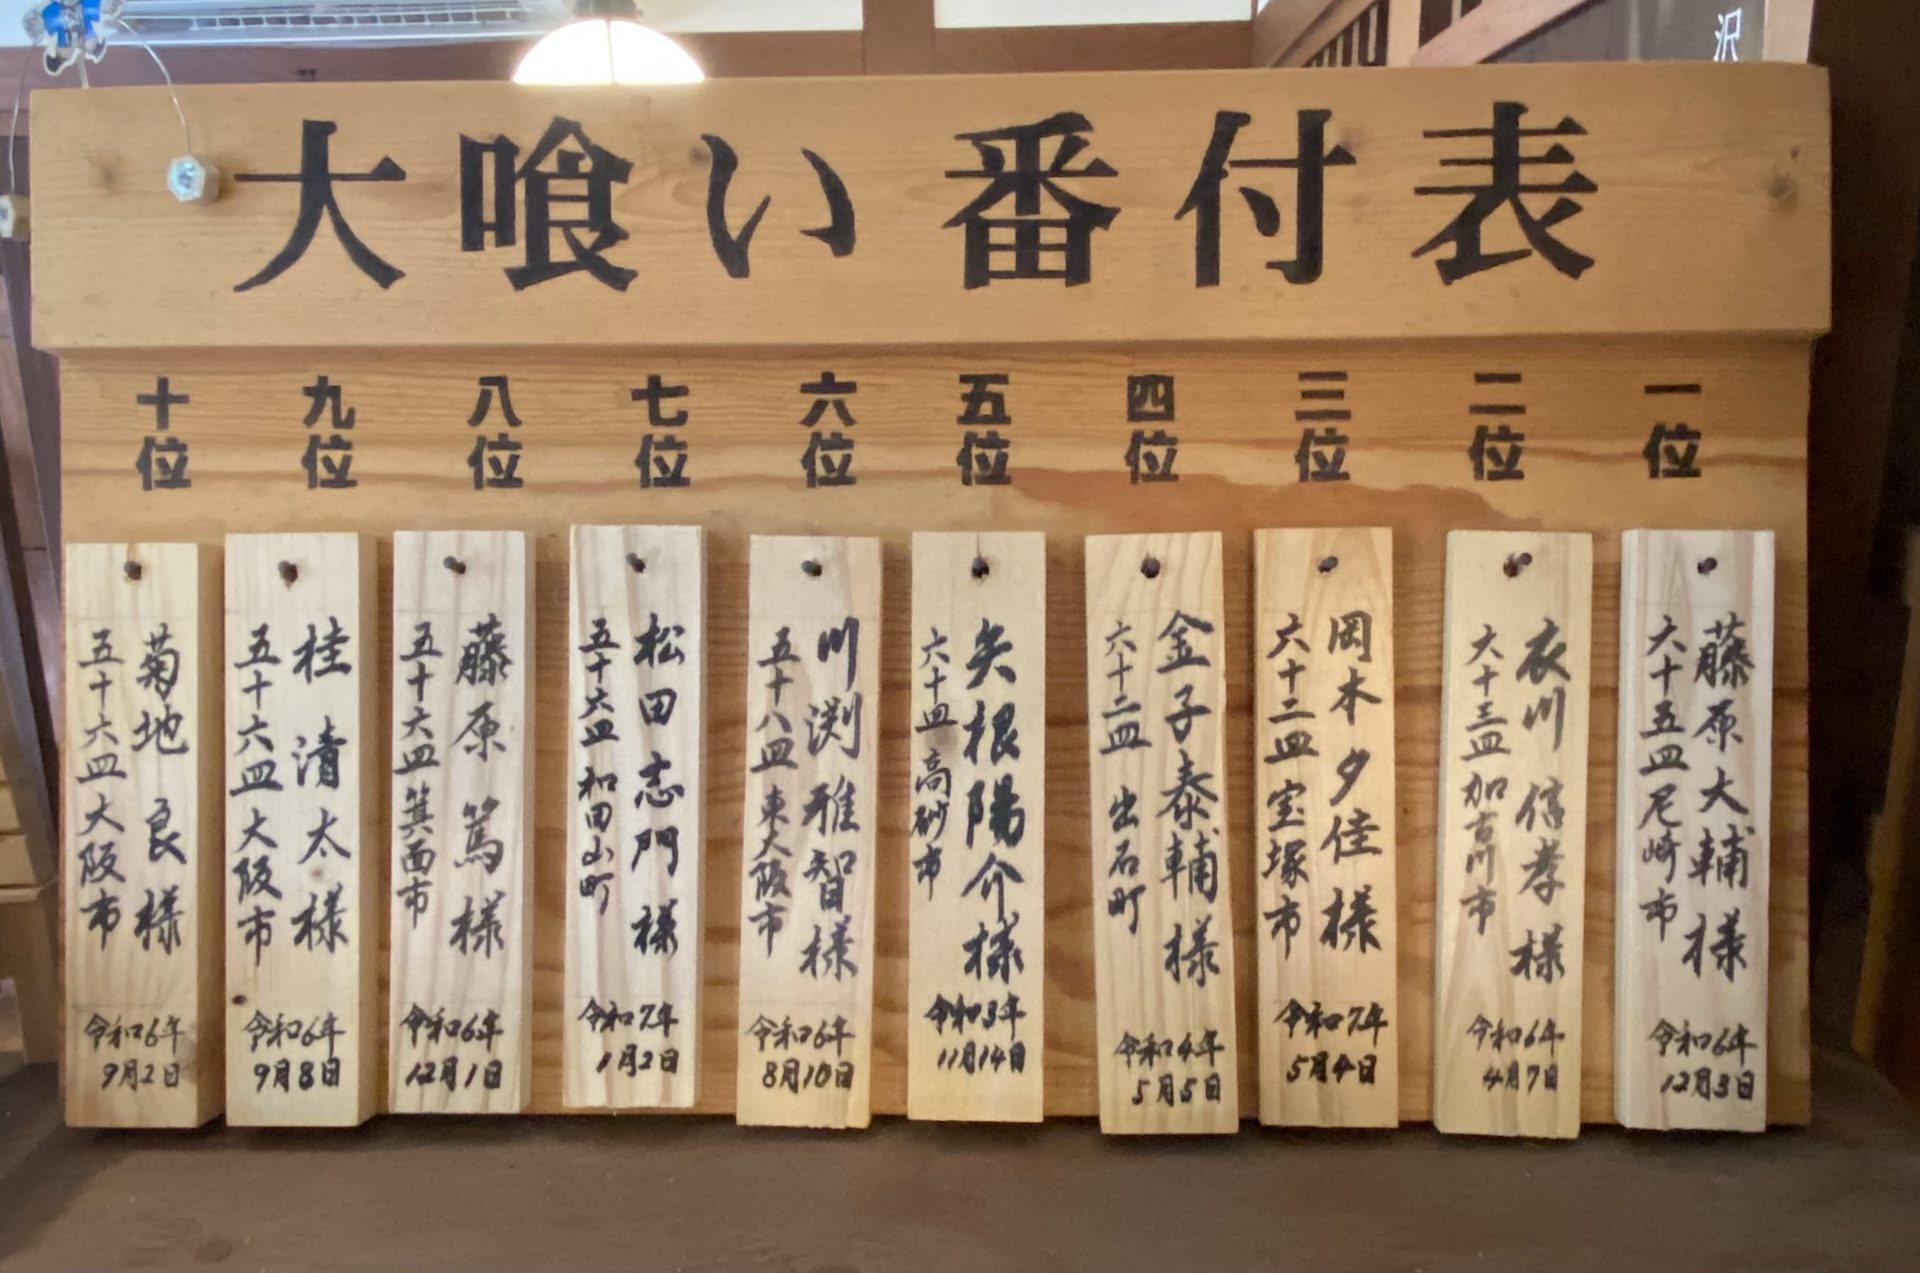 沢
大喰い番付表
一位
藤原大輔様
六十五皿 尼崎市
令和6年
12月3日
二位
衣川信孝様
六十三皿 加古川市
令和6年
4月7日
三位
岡本夕佳様
六十二皿 宝塚市
令和7年
5月4日
四位
金子泰輔様
六十二皿 出石町
令和4年
5月5日
五位
矢根陽介様
六十皿 高砂市
令和3年
11月14日
六位
川渕雅智様
五十八皿 東大阪市
令和6年
8月10日
七位
松田志門様
五十六皿 和田山町
令和7年
1月2日
八位
藤原 篤様
五十六皿 箕面市
令和6年
12月1日
九位
桂 清太様
五十六皿 大阪市
令和6年
9月8日
十位
菊地 良様
五十六皿 大阪市
令和6年
9月2日